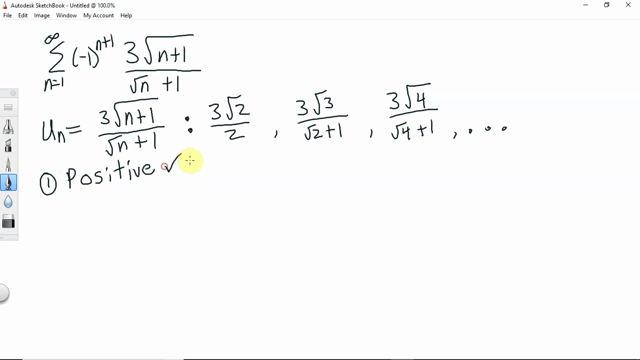 Autodesk SketchBook - Untitled @ 100.0%
File Edit Image Window My Account Help
∞
∑ (-1)^(n+1) 3√(n+1) / (√n + 1)
n=1
Uₙ = 3√(n+1) / (√n + 1) : 3√2 / 2 , 3√3 / (√2+1) , 3√4 / (√4+1) , . . .
① Positive ✓